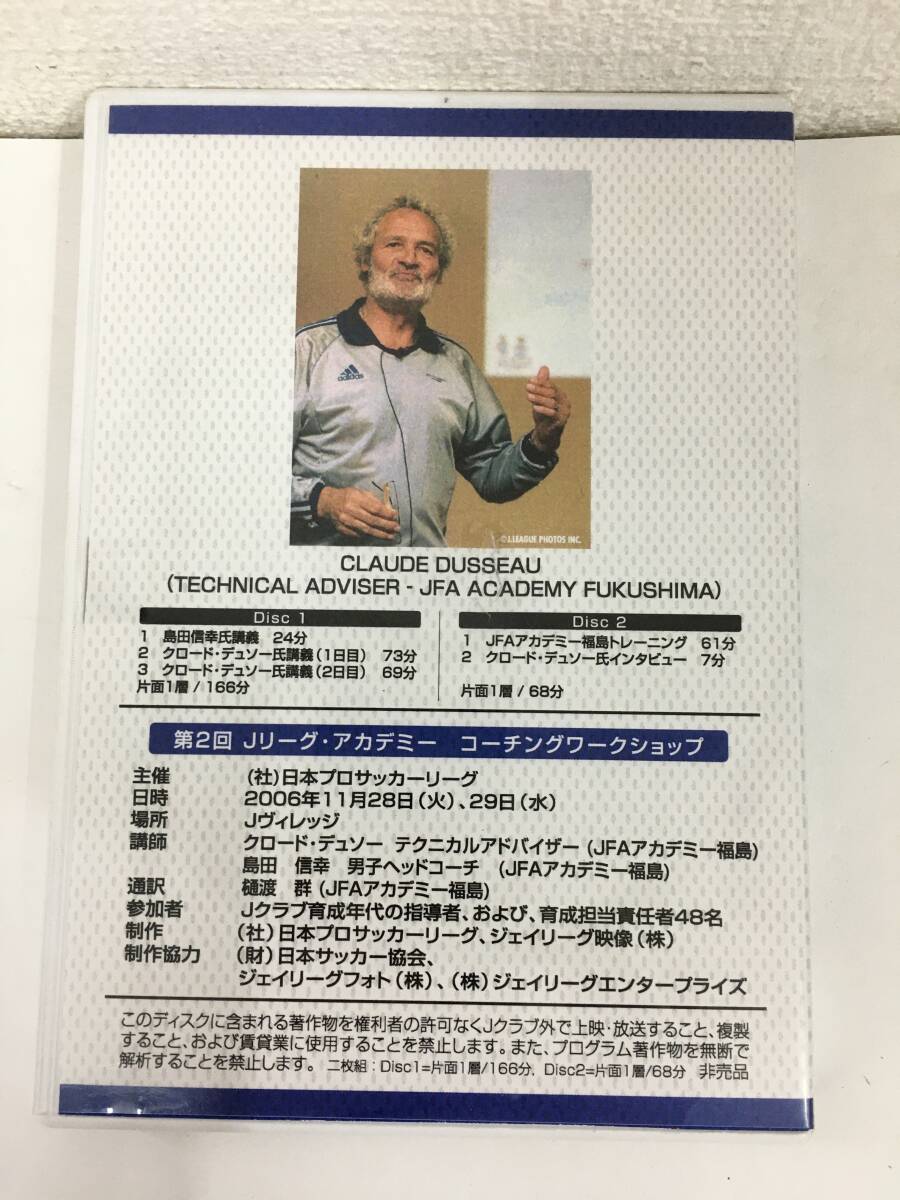 adidas
©J.LEAGUE PHOTOS INC.
CLAUDE DUSSEAU
(TECHNICAL ADVISER - JFA ACADEMY FUKUSHIMA)
Disc 1
1 島田信幸氏講義 24分
2 クロード・デュソー氏講義(1日目) 73分
3 クロード・デュソー氏講義(2日目) 69分
片面1層 / 166分
Disc 2
1 JFAアカデミー福島トレーニング 61分
2 クロード・デュソー氏インタビュー 7分
片面1層 / 68分
第2回 Jリーグ・アカデミー コーチングワークショップ
主催 (社)日本プロサッカーリーグ
日時 2006年11月28日(火)、29日(水)
場所 Jヴィレッジ
講師 クロード・デュソー テクニカルアドバイザー (JFAアカデミー福島)
島田 信幸 男子ヘッドコーチ (JFAアカデミー福島)
通訳 樋渡 群 (JFAアカデミー福島)
参加者 Jクラブ育成年代の指導者、および、育成担当責任者48名
制作 (社)日本プロサッカーリーグ、ジェイリーグ映像(株)
制作協力 (財)日本サッカー協会、
ジェイリーグフォト(株)、(株)ジェイリーグエンタープライズ
このディスクに含まれる著作物を権利者の許可なくJクラブ外で上映・放送すること、複製
すること、および賃貸業に使用することを禁止します。また、プログラム著作物を無断で
解析することを禁止します。 二枚組:Disc1=片面1層/166分, Disc2=片面1層/68分 非売品